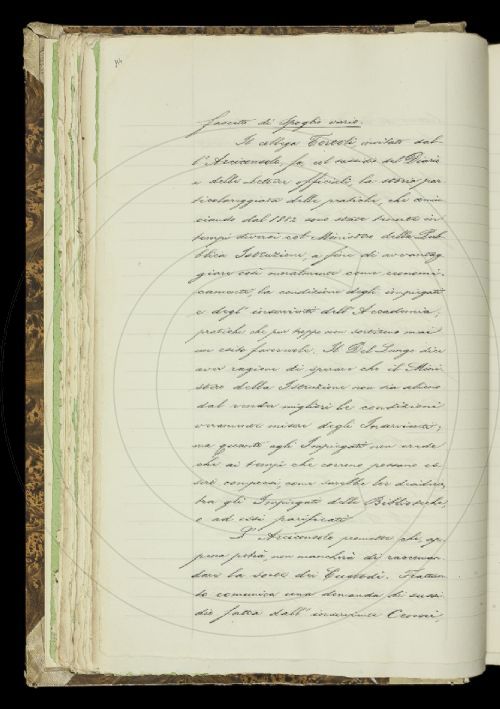 fascetto di Spoglio vario.
Il collega Tortoli, invitato dal-
l'Arciconsolo, fa col sussidio del Diario
e delle lettere officiali, la storia par-
ticolareggiata delle pratiche, che comin-
ciando dal 1882 sono state tenute in
tempi diversi col Ministero della Pub-
blica Istruzione, a fine di avvantag-
giare così moralmente come economi-
camente, la condizione degli impiegati
e degli inservienti dell'Accademia;
pratiche che pur troppo non sortirono mai
un esito favorevole. Il Del Lungo dice
aver ragione di sperare che il Mini-
stero della Istruzione non sia alieno
dal render migliori le condizioni
veramente misere degli Inservienti;
ma quanto agli Impiegati non crede
che ai tempi che corrono possano es-
sere compresi come sarebbe lor desiderio,
tra gli Impiegati delle Biblioteche,
o ad essi parificati.
L'Arciconsolo promette che, ap-
pena potrà, non mancherà di raccoman-
dare la sorte dei Custodi. Frattan-
to comunica una domanda di sussi-
dio fatta dall'inserviente